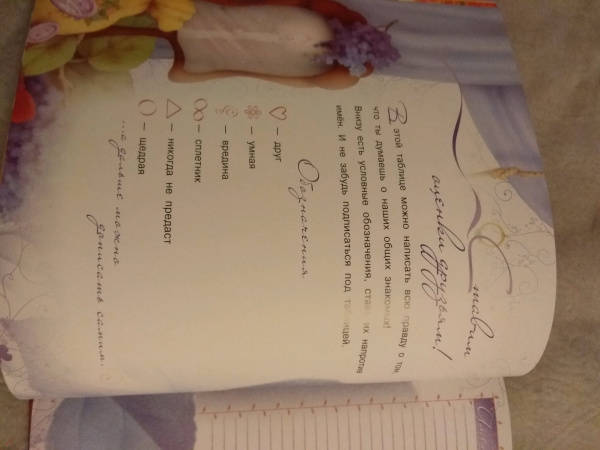 Ставим
оценки друзьям!
В этой таблице можно написать всю правду о том,
что ты думаешь о наших общих знакомых!
Внизу есть условные обозначения, ставь их напротив
имён. И не забудь подписаться под таблицей.
Обозначения
– друг
– умная
– вредина
– сплетник
– никогда не предаст
– щедрая
...а дальше можно
дописать самим.